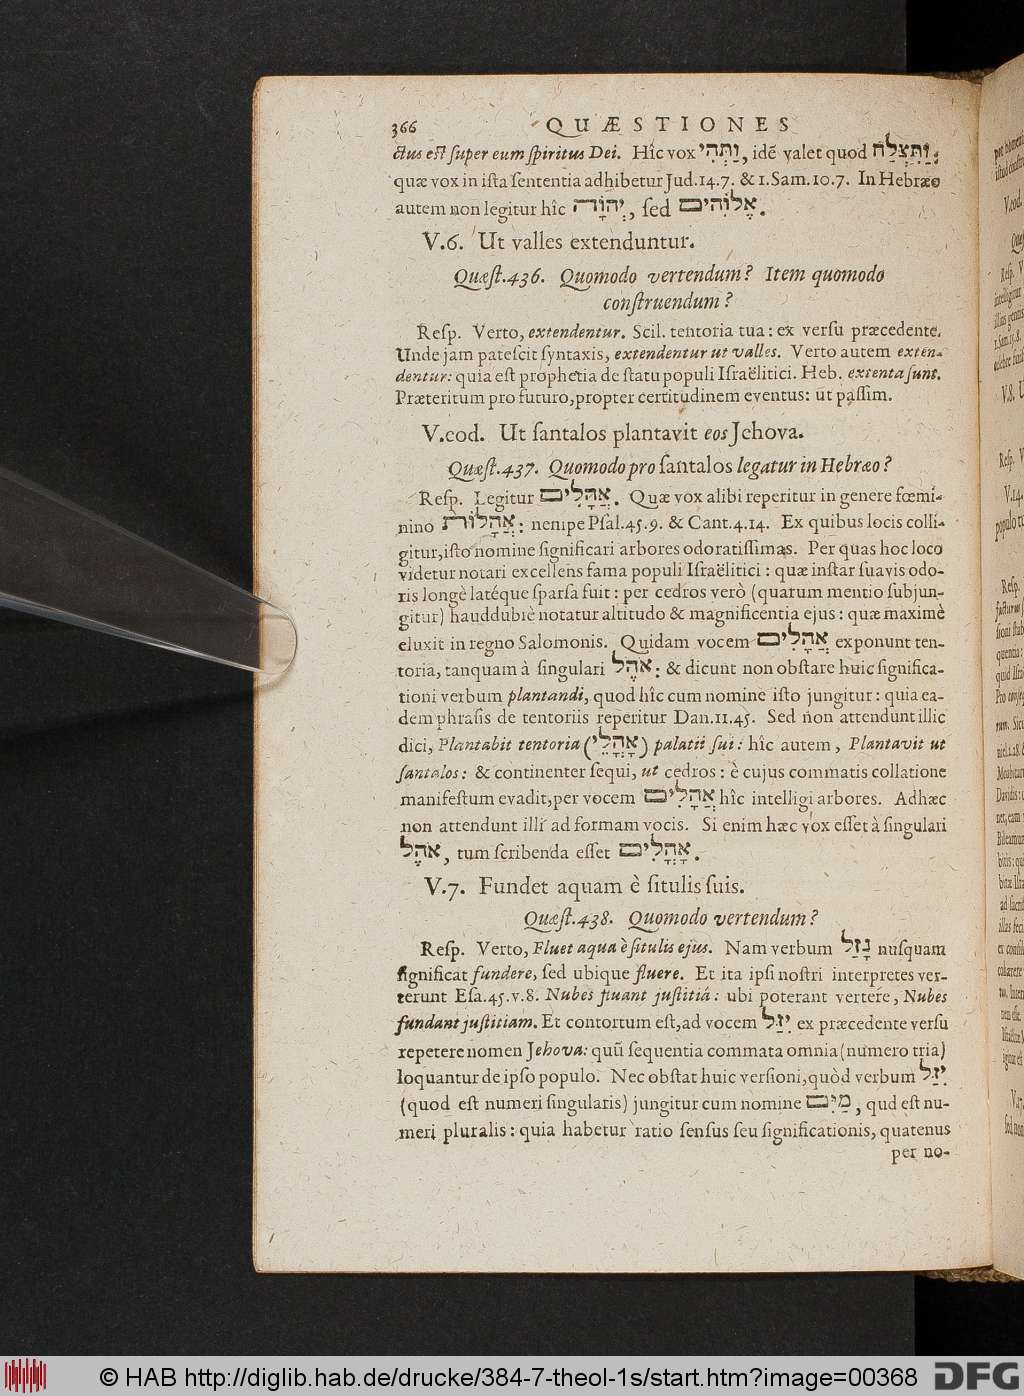 366 QUÆSTIONES
ctus est ſuper eum ſpiritus Dei. Hîc vox וַתְּהִי, idẽ valet quod וַתִּצְלַח;
quæ vox in iſta ſententia adhibetur Jud.14.7. & 1.Sam.10.7. In Hebræo
autem non legitur hîc יְהוָֹה, ſed אֱלוֹהִים.
V.6. Ut valles extenduntur.
Quæſt.436. Quomodo vertendum? Item quomodo
conſtruendum?
Reſp. Verto, extendentur. Scil. tentoria tua: ex verſu præcedente.
Unde jam pateſcit ſyntaxis, extendentur ut valles. Verto autem exten-
dentur: quia eſt prophetia de ſtatu populi Iſraëlitici. Heb. extenta ſunt.
Præteritum pro futuro, propter certitudinem eventus: ut paſſim.
V.eod. Ut ſantalos plantavit eos Jehova.
Quæſt.437. Quomodo pro ſantalos legatur in Hebræo?
Reſp. Legitur אֲהָלִים. Quæ vox alibi reperitur in genere fœmi-
nino אֲהָלוֹת: nempe Pſal.45.9. & Cant.4.14. Ex quibus locis colli-
gitur, iſto nomine ſignificari arbores odoratiſſimas. Per quas hoc loco
videtur notari excellens fama populi Iſraëlitici: quæ inſtar ſuavis odo-
ris longè latéque ſparſa fuit: per cedros verò (quarum mentio ſubjun-
gitur) hauddubiè notatur altitudo & magnificentia ejus: quæ maximè
eluxit in regno Salomonis. Quidam vocem אֲהָלִים exponunt ten-
toria, tanquam à ſingulari אֹהֶל: & dicunt non obſtare huic ſignifica-
tioni verbum plantandi, quod hîc cum nomine iſto jungitur: quia ea-
dem phraſis de tentoriis reperitur Dan.11.45. Sed non attendunt illic
dici, Plantabit tentoria (אָהֳלֵי) palatii ſui: hîc autem, Plantavit ut
ſantalos: & continenter ſequi, ut cedros: è cujus commatis collatione
manifeſtum evadit, per vocem אֲהָלִים hîc intelligi arbores. Adhæc
non attendunt illi ad formam vocis. Si enim hæc vox eſſet à ſingulari
אֹהֶל, tum ſcribenda eſſet אָהֳלִים.
V.7. Fundet aquam è ſitulis ſuis.
Quæſt.438. Quomodo vertendum?
Reſp. Verto, Fluet aqua è ſitulis ejus. Nam verbum נָזַל nuſquam
ſignificat fundere, ſed ubique fluere. Et ita ipſi noſtri interpretes ver-
terunt Eſa.45.v.8. Nubes fluant juſtitiâ: ubi poterant vertere, Nubes
fundant juſtitiam. Et contortum eſt, ad vocem יִזַּל ex præcedente verſu
repetere nomen Jehova: quũ ſequentia commata omnia (numero tria)
loquantur de ipſo populo. Nec obſtat huic verſioni, quòd verbum יִזַּל
(quod eſt numeri ſingularis) jungitur cum nomine מַיִם, qud eſt nu-
meri pluralis: quia habetur ratio ſenſus ſeu ſignificationis, quatenus
per no-
© HAB http://diglib.hab.de/drucke/384-7-theol-1s/start.htm?image=00368
DFG